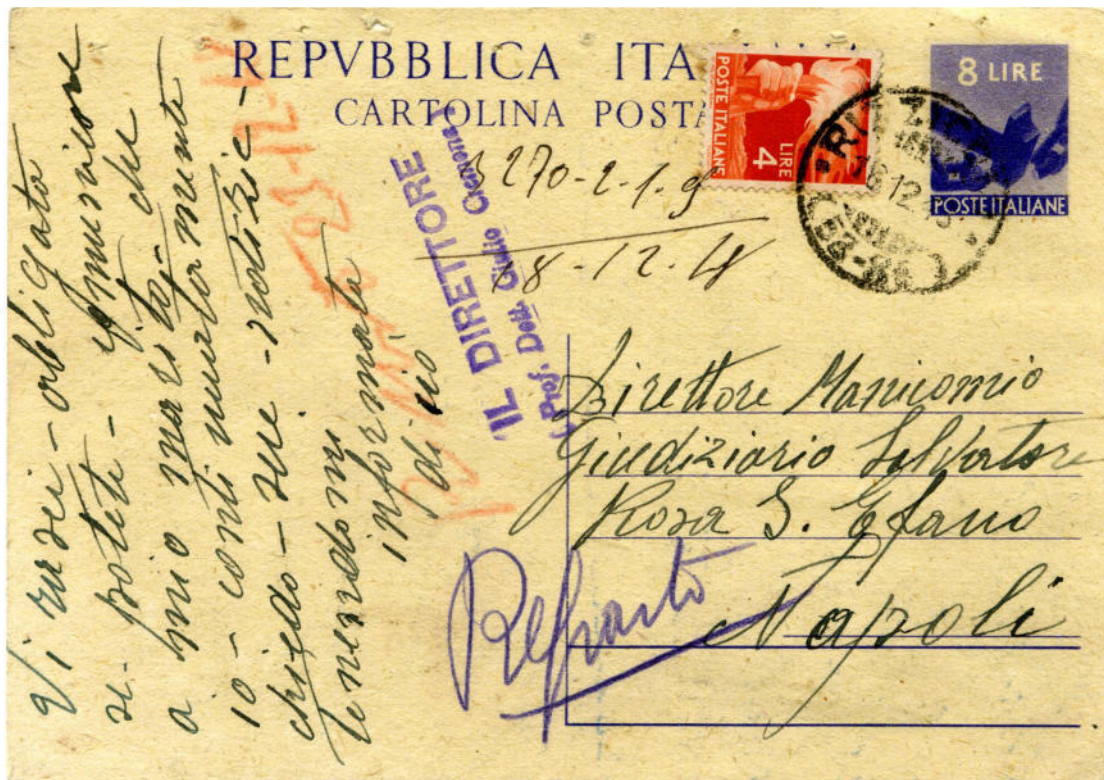 REPVBBLICA ITA
CARTOLINA POSTA
8 LIRE
POSTE ITALIANE
POSTE ITALIANE
LIRE
4
270-2-1-9
18-12-48
IL DIRETTORE
(Prof. Dott. Giulio Cremona)
Direttore Manicomio
Giudiziario Salvatore
Rosa S. Efano
Napoli
Reparto
Vi rarei - obbligato
se potete - comunicare
a mio marito - che
io - continuatamente
chiedo - sue - notizie -
tenendomi
informata
di ciò